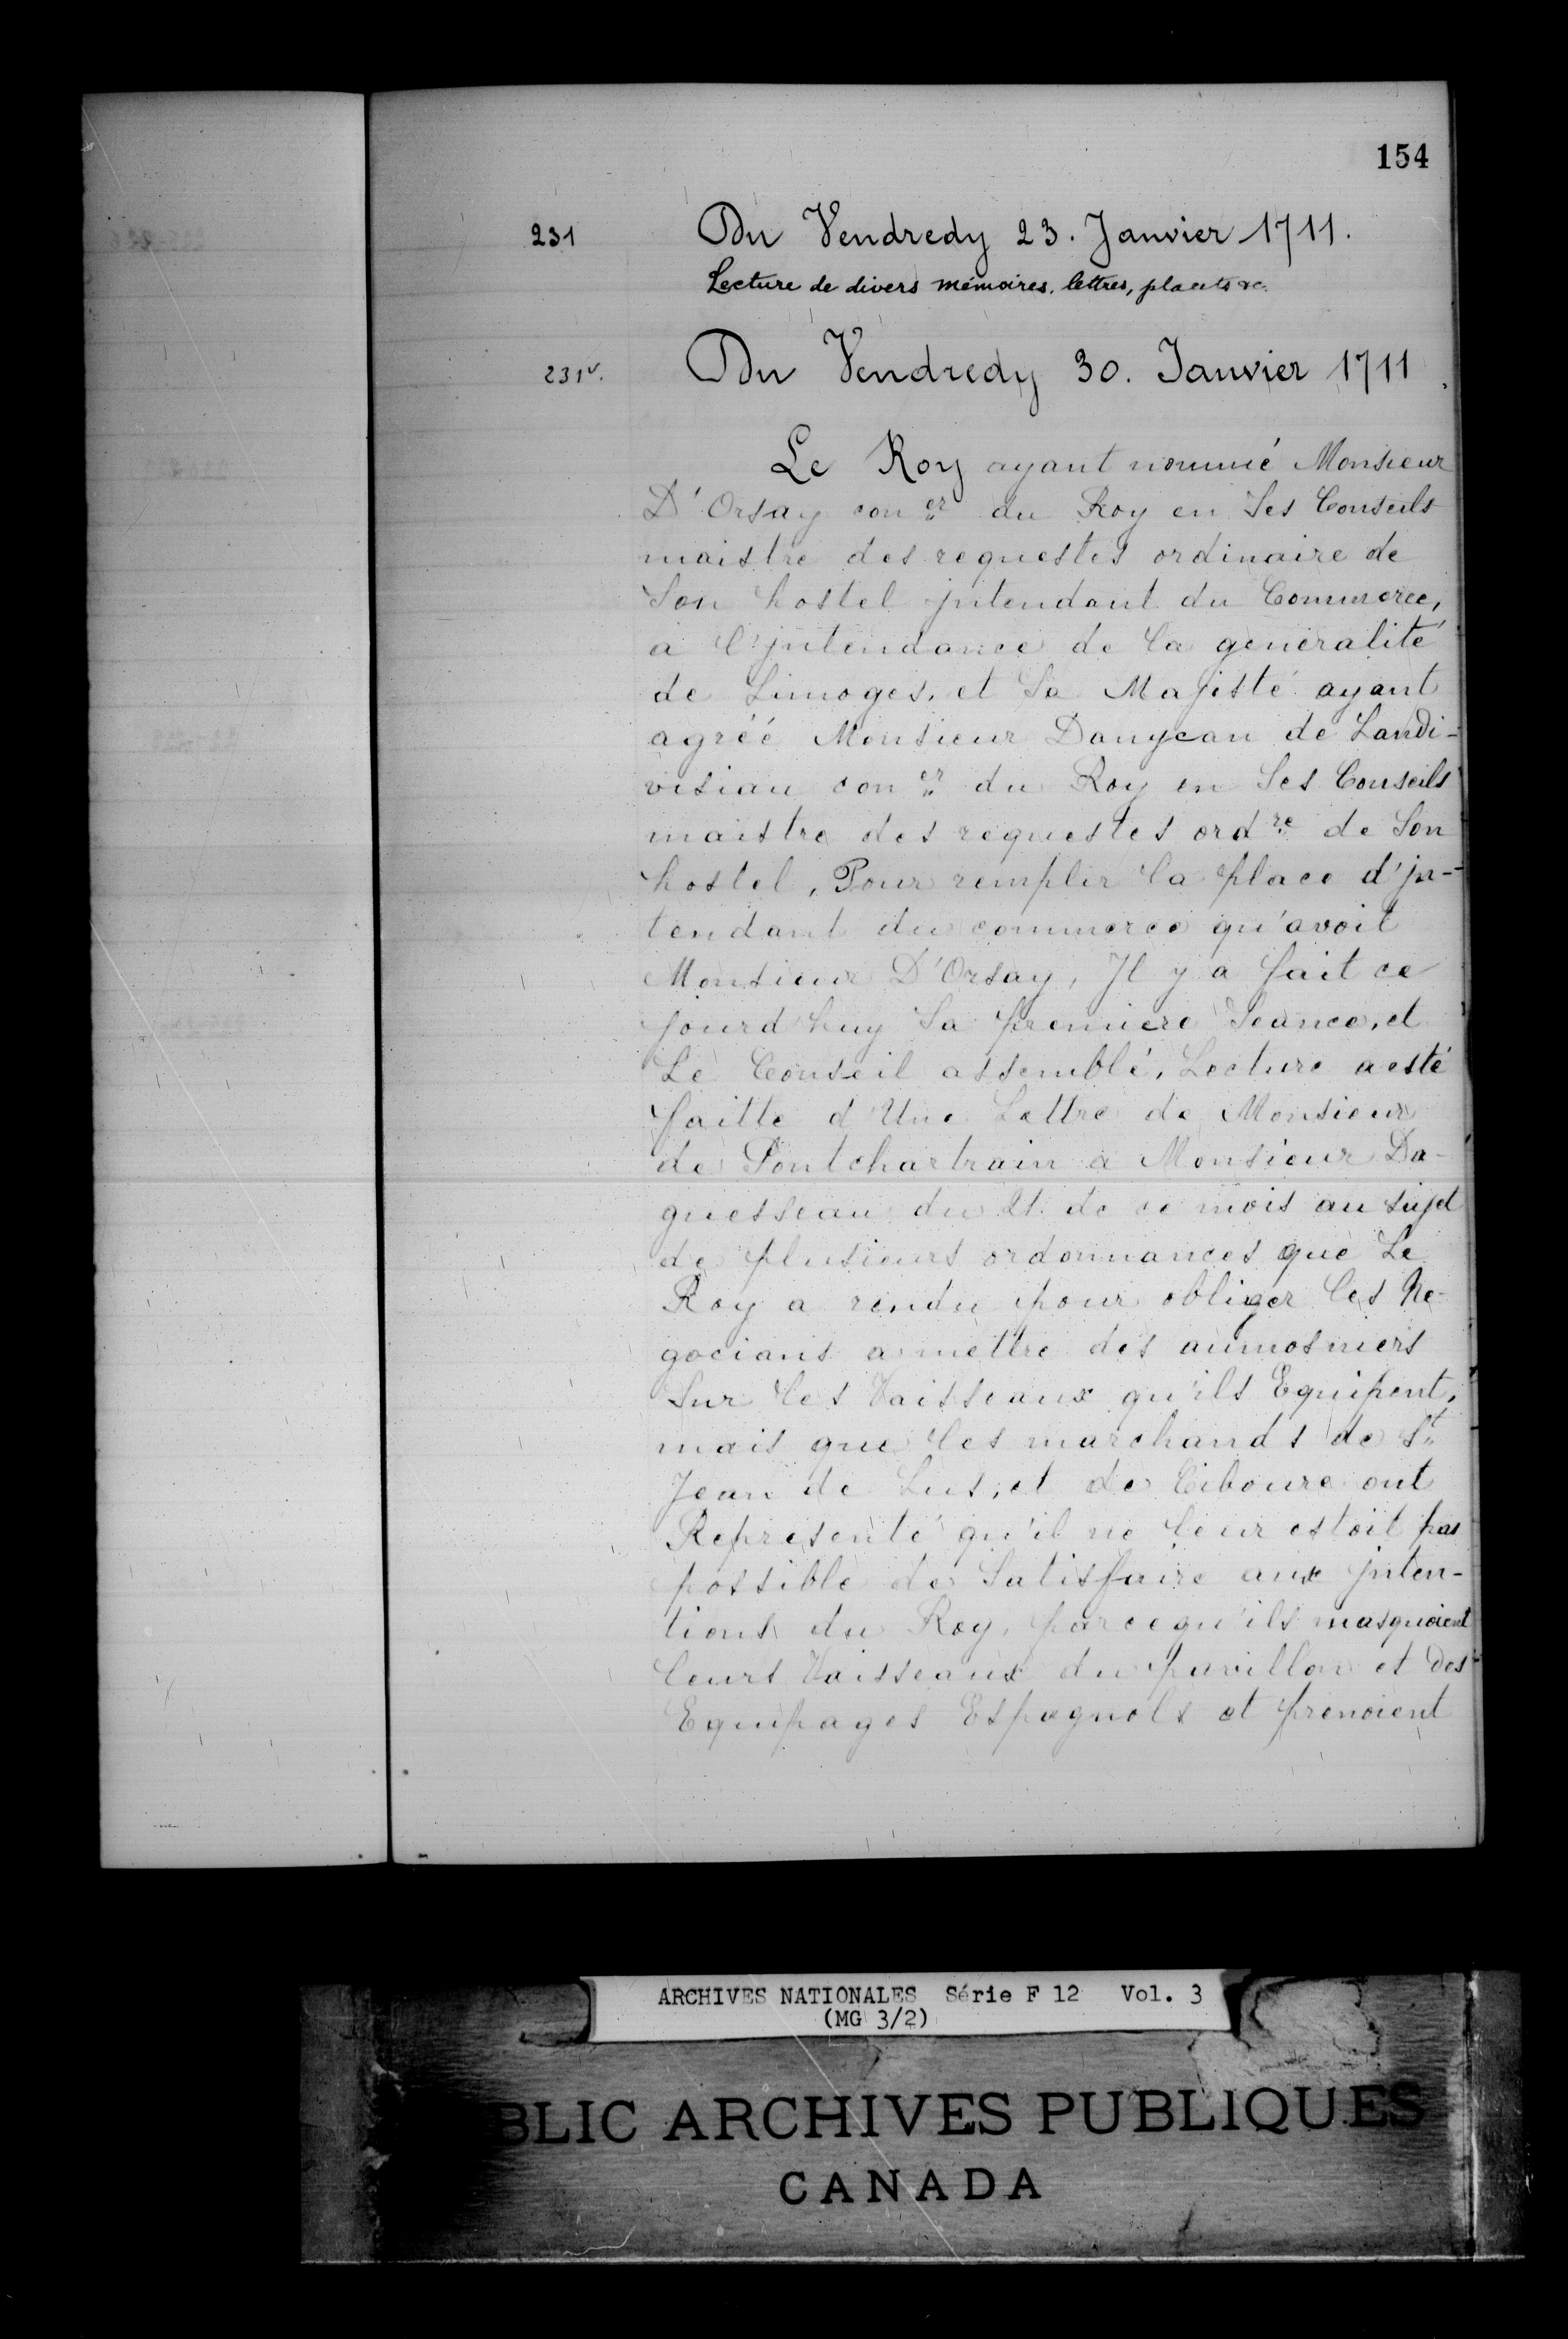 154
231 Du Vendredy 23. Janvier 1711.
Lecture de divers mémoires, lettres, placets &c.
231v. Du Vendredy 30. Janvier 1711.
Le Roy ayant nommé Monsieur
D'Orsay con.er du Roy en Ses Conseils
maistre des requestes ordinaire de
Son hostel jntendant du Commerce,
a l'jntendance de la generalité
de Limoges, et Sa Majesté ayant
agréé Monsieur Danycan de Landi-
visiau con.er du Roy en Ses Conseils
maistre des requestes ord.re de Son
hostel, Pour remplir la place d'jn-
tendant du commerce qu'avoit
Monsieur D'Orsay, Il y a fait ce
jourd'huy Sa premiere Seance, et
Le Conseil assemblé, Lecture a esté
faitte d'Une Lettre de Monsieur
de Pontchartrain a Monsieur Da-
guesseau du 21. de ce mois au sujet
de plusieurs ordonnances que Le
Roy a rendu pour obliger les Ne-
gocians a mettre des aumosniers
Sur les Vaisseaux qu'ils Equipent,
mais que les marchands de St
Jean de Lus, et de Ciboure ont
Representé qu'il ne leur estoit pas
possible de Satisfaire aux jnten-
tions du Roy, parcequ'ils masquoient
leurs Vaisseaux du pavillon et des
Equipages Espagnols et prenoient
ARCHIVES NATIONALES Série F 12 Vol. 3
(MG 3/2)
BLIC ARCHIVES PUBLIQUES
CANADA